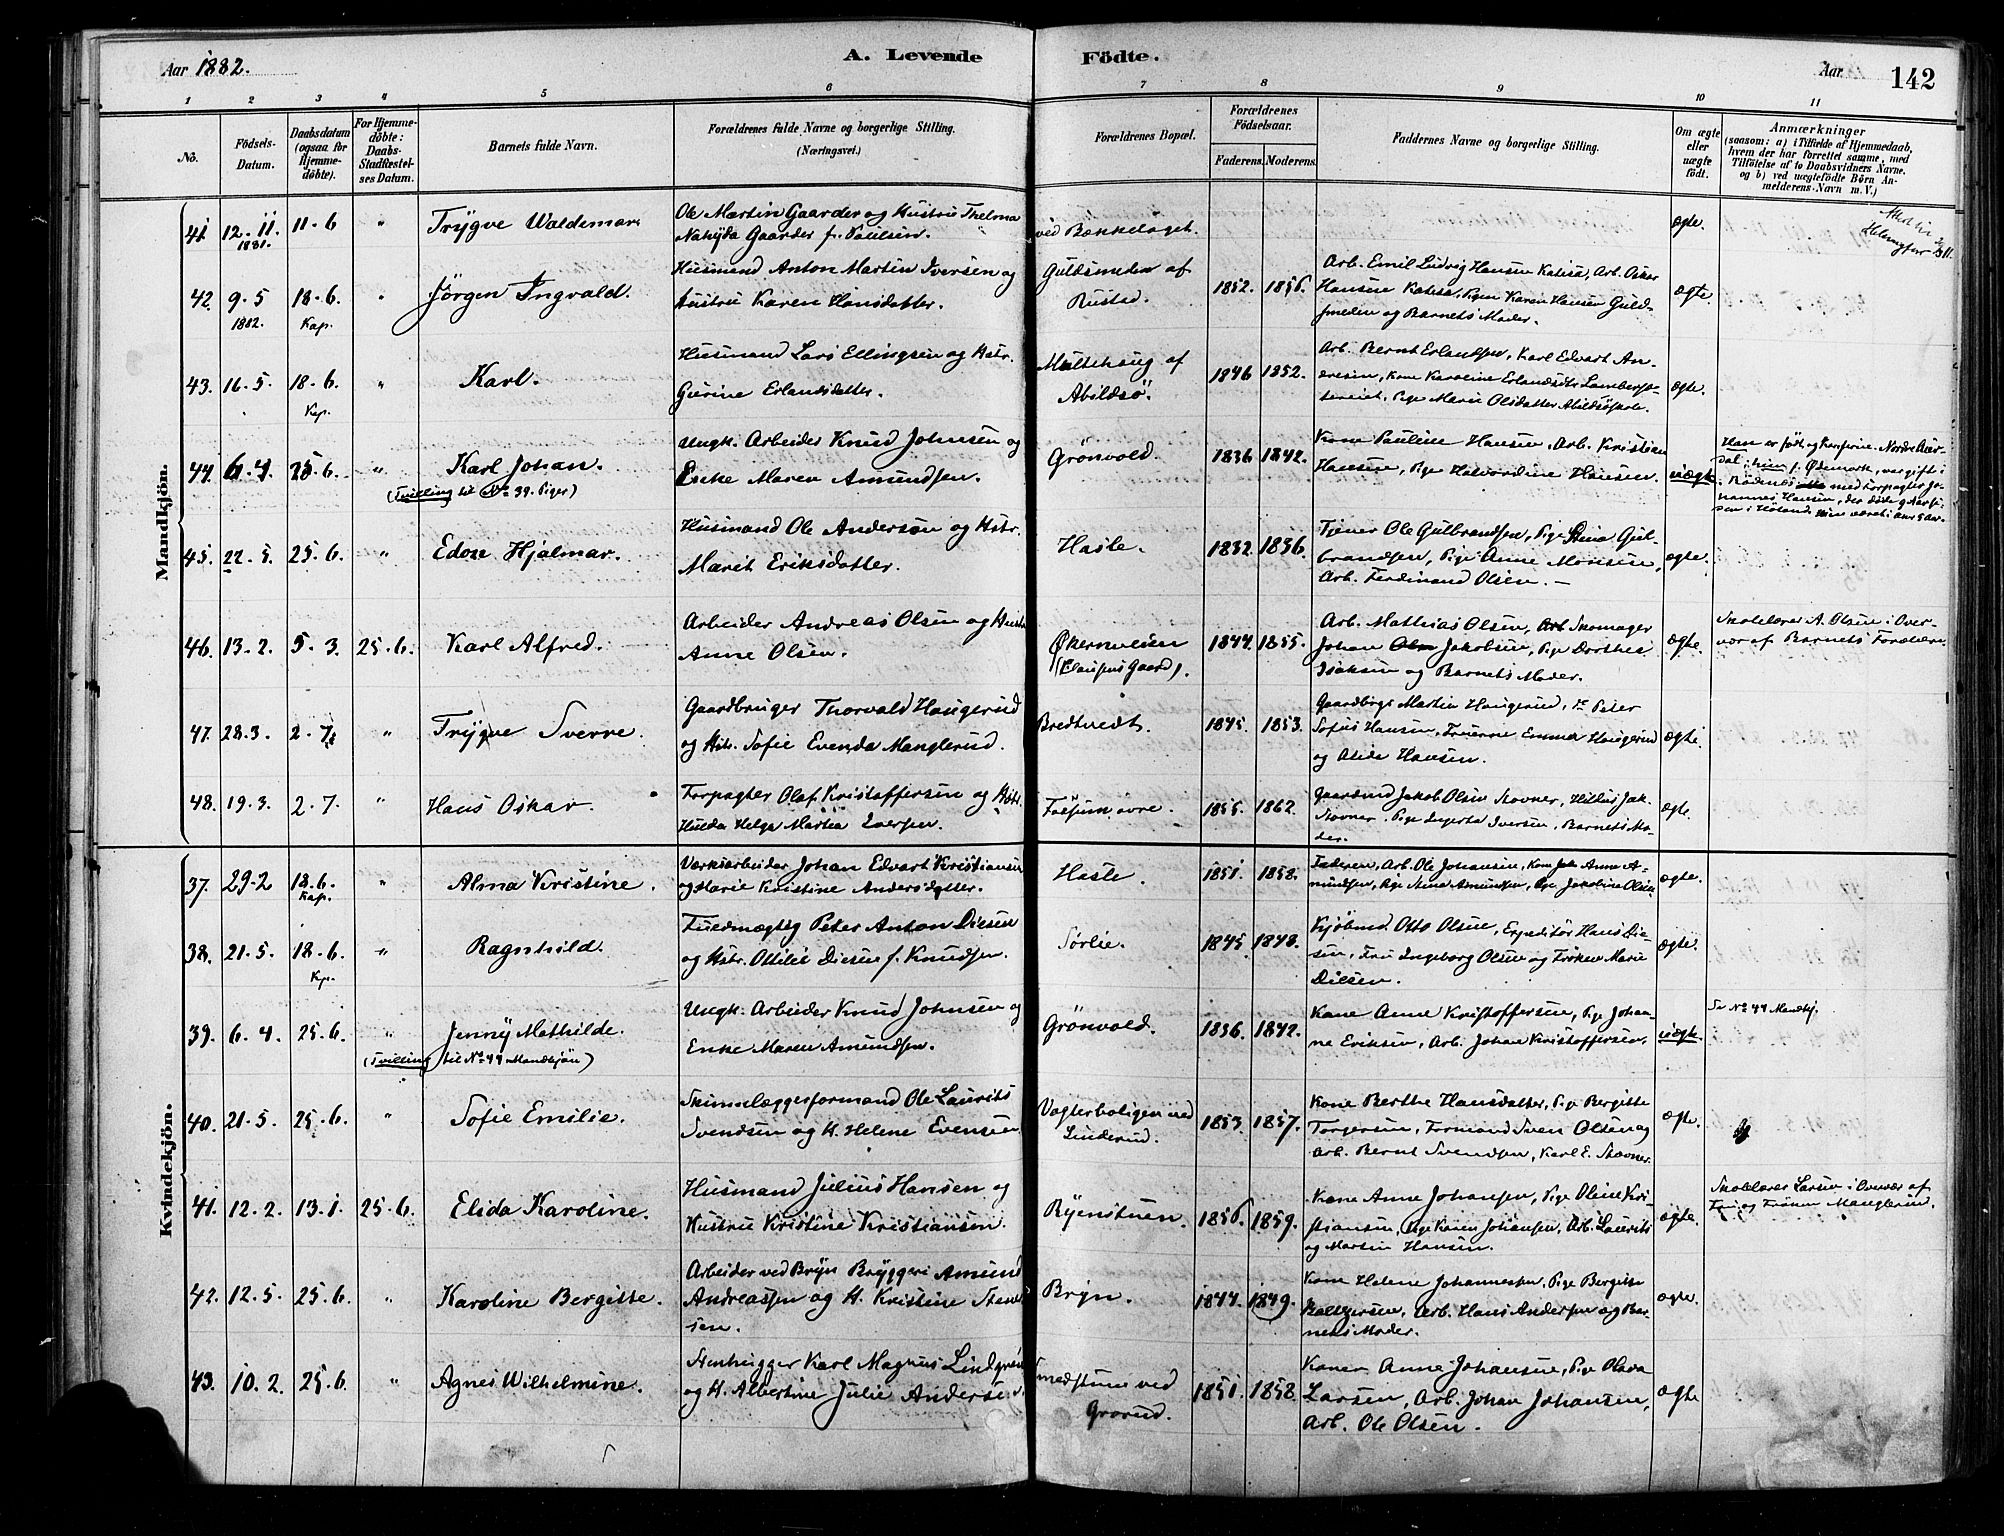 Aar 1882.
A. Levende Födte.
Aar
142
1 2 3 4 5 6 7 8 9 10 11
No.
Födsels-Datum.
Daabsdatum (ogsaa for Hjemme-döbte).
For Hjemme-döbte: Daabs-Stadfæstel-ses Datum.
Barnets fulde Navn.
Forældrenes fulde Navne og borgerlige Stilling. (Næringsvei.)
Forældrenes Bopæl.
Forældrenes Födselsaar.
Faderens. Moderens.
Faddernes Navne og borgerlige Stilling.
Om ægte eller uægte födt.
Anmærkninger
(saasom: a) i Tilfælde af Hjemmedaab,
hvem der har forrettet samme, med
Tilföielse af to Daabsvidners Navne,
og b) ved uægtefödte Börn An-
melderens Navn m. V.)
Mandkjön.
41. 12.11. 1881. 11-6 " Trygve Waldemar. Ole Martin Gaarder og Hustru Thelma
Gaarder f. Paulsen. ved Bækkelaget. ægte.
42. 9-5 1882. 18-6. Kap. " Jörgen Ingvald. Husmand Anton Martin Iversen og
Hustru Karen Hansdatter. Guldsmeden af Rustad. 1852. 1856. Arb. Emil Ludvig Hansen Katisa, Arb. Oskar
Hansen Katisa, Pigen Karen Hansen Guld-
smeden og Barnets Moder. ægte.
43. 16-5. 18-6. Kap. " Karl. Husmand Lars Ellingsen og Hstr.
Gurine Erlandsdatter. Multehaug af Abildsö. 1846 1852. Arb. Bernt Erlandsen, Karl Edvart An-
dresen, Kone Karoline Erlandsdtr
Pige Marie Olsdatter Abildsöskole. ægte.
44. 6.4. 25-6. " Karl Johan.
(Tvilling til No 39. Piger) Ungk. Arbeider Knud Johnsen og
Enke Maren Amundsen. Grönvold. 1836 1842. Kone Pauline Hansen, Arb. Kristian
Hansen, Pige Halvardine Hansen. uægte Han er födt og Konfirm. Nordre Aur-
dal; hun f. Ödemark, var gift i
Rödenæs med Forpagter Jo-
hannes Hansen,
45. 22-5. 25-6. " Edon Hjalmar. Husmand Ole Andersen og Hstr.
Marit Eriksdatter. Hasle. 1832. 1836. Tjener Ole Gulbrandsen, Pige Stina Gul-
brandsen, Pige Anne Monsen,
Arb. Ferdinand Olsen. — ægte.
46. 13-2. 5-3. 25-6. Karl Alfred. Arbeider Andreas Olsen og Hustr
Anne Olsen. Økernveien
(Clausens Gaard). 1844. 1855. Arb. Mathias Olsen, Skomager
Johan Jakobsen, Pige Dorthea
Isaksen og Barnets Moder. ægte. Skolelærer A. Olsen i Over-
vær af Barnets Forældre.
47. 28.3. 2-7. " Trygve Sverre. Gaardbruger Thorvald Haugerud
og Hstr. Sofie Evenda Manglerud. Bredtvedt. 1845. 1853. Gaardbrgr Martin Haugerud, Hr Peter
Sofus Hansen, Fruerne Emma Haugerud
og Alida Hansen. ægte.
48. 19.3. 2-7. " Hans Oskar. Forpagter Olaf Kristoffersen og Hstr.
Hulda Helga Martea Iversen. Fossum övre. 1855. 1862. Gaardmd Jakob Olsen Stovner,
Stovner. Pige Ingerta Iversen, Barnets Mo-
der. ægte.
Kvindekjön.
37. 29-2 18-6. Kap. " Alma Kristine. Værksarbeider Johan Edvart Kristiansen
og Marie Kristine Andersdatter. Hasle. 1851. 1858. Faderen, Arb. Ole Johansen, Kone Anne A-
mundsen, Pige Stina Amundsen, Pige Jakoline Olsen ægte.
38. 21.5. 18-6. Kap. " Ragnhild. Fuldmægtig Peter Anton Diesen
og Hstr. Ottilie Diesen f. Knudsen. Sörlie. 1845. 1848. Kjöbmd Otto Olsen, Expeditör Hans Die-
sen, Fru Ingeborg Olsen og Fröken Marie
Diesen. ægte.
39. 6.4. 25-6. " Jenny Mathilde.
(Tvilling til No 44 Mandkjön) Ungk. Arbeider Knud Johnsen og
Enke Maren Amundsen. Grönvold. 1836. 1842. Kone Anne Kristoffersen, Pige Johan-
ne Eriksen, Arb. Johan Kristoffersen. uægte. Se No 44 Mandkj.
40. 21.5. 25-6. " Sofie Emilie. Skinnelæggerformand Ole Laurits
Svendsen og H. Helene Evensen. Vogterboligen ved Linderud. 1853. 1857. Kone Berthe Hansdatter, Pige Bergitte
Torgersen, Formand Sven Olsen og
Arb. Bernt Svendsen, Karl E. Stovner. ægte.
41. 12.2. 13.1. 25-6. Elida Karoline. Husmand Julius Hansen og
Hustru Kristine Kristiansen. Ryenstuen. 1856. 1859. Kone Anne Johansen, Pige Oline Kri-
stiansen, Pige Karen Johansen, Arb. Laurits
og Martin Hansen. ægte. Skolelærer Larsen i Overvær af
Fru og Fröken Manglerud.
42. 12.5. 25.6. " Karoline Bergitte. Arbeider ved Bryn Bryggeri Amund
Andreassen og H. Kristine
sen. Bryn. 1844. 1849. Kone Helene Johannesen, Pige Bergitte
Arb. Hans Andersen og Bar-
nets Moder. ægte.
43. 10.2. 25.6. " Agnes Wilhelmine. Stenhugger Karl Magnus Lindgren
og H. Albertine Julie Andersen. Smedstuen ved Grorud. 1851. 1858. Konen Anne Johansen, Pige Olava
Larsen, Arb. Johan Johansen,
Arb. Ole Olsen. ægte